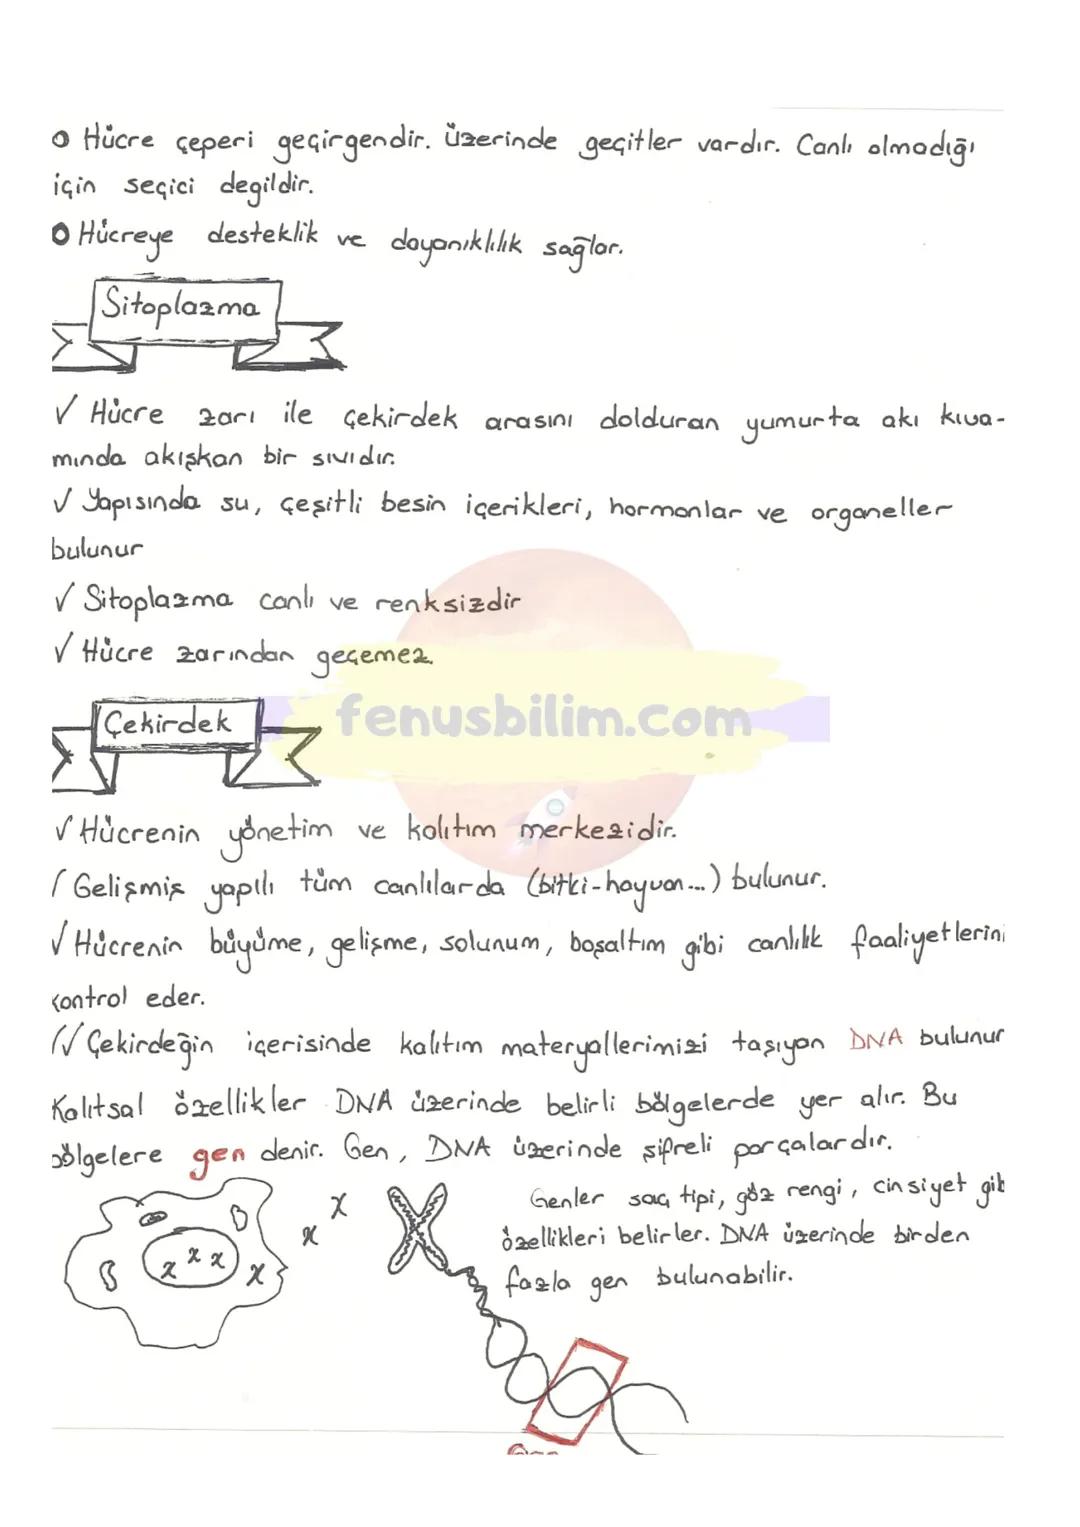 Hücre çeperi geçirgendir. Üzerinde geçitler vardır. Canlı olmadığı
için seçici degildir.
Hücreye desteklik ve dayanıklılık sağlar.
Sitoplazma
√ Hücre zarı ile çekirdek arasını dolduran yumurta akı kıva-
mında akışkan bir sıvıdır.
√ Yapısında su, çeşitli besin içerikleri, hormonlar ve organeller
bulunur
√ Sitoplazma canlı ve renksizdir
√ Hücre zarından geçemez.
Çekirdek
fenusbilim.com
√ Hücrenin yönetim ve kalıtım merkezidir.
√ Gelişmiş yapılı tüm canlılarda (bitki-hayvan...) bulunur.
√ Hücrenin büyüme, gelişme, solunum, boşaltım gibi canlılık faaliyetlerini
kontrol eder.
√ Çekirdeğin içerisinde kalıtım materyallerimizi taşıyan DNA bulunur
Kalıtsal özellikler DNA üzerinde belirli bölgelerde yer alır. Bu
bölgelere gen denir. Gen, DNA üzerinde şifreli parçalardır.
Genler saç tipi, göz rengi, cinsiyet gib
özellikleri belirler. DNA üzerinde birden
fazla gen bulunabilir.